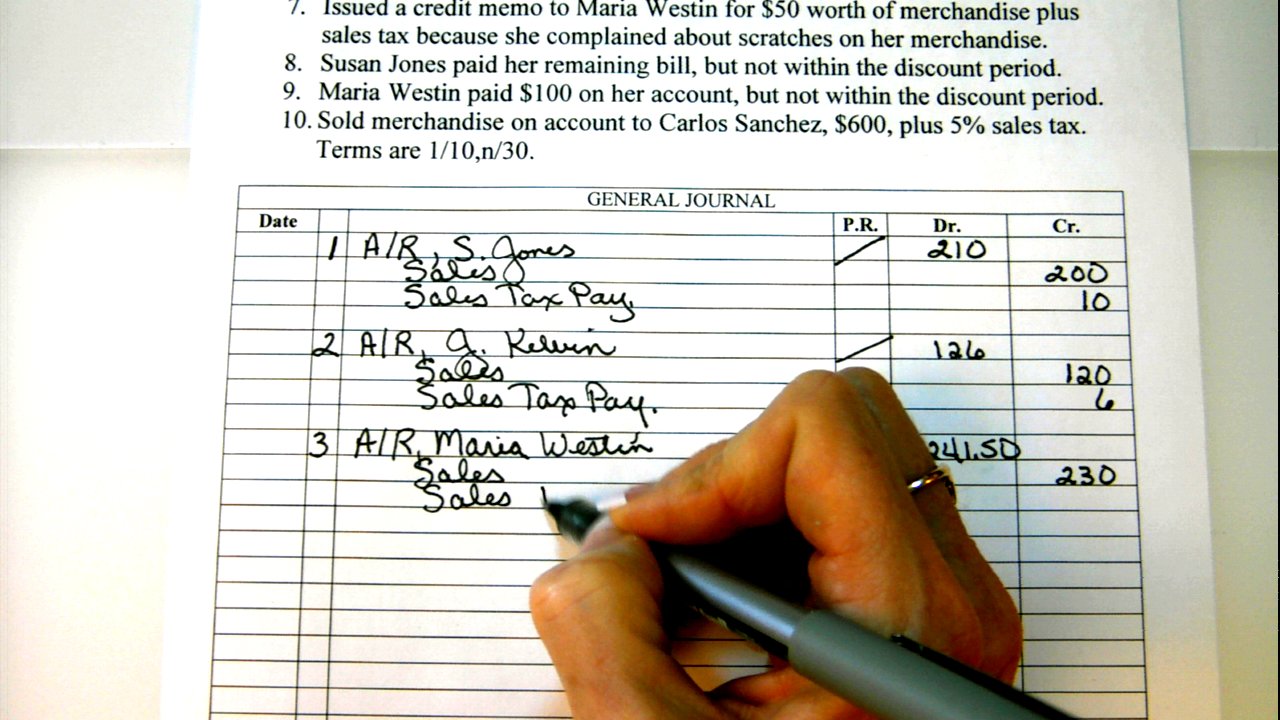 7. Issued a credit memo to Maria Westin for $50 worth of merchandise plus
sales tax because she complained about scratches on her merchandise.
8. Susan Jones paid her remaining bill, but not within the discount period.
9. Maria Westin paid $100 on her account, but not within the discount period.
10. Sold merchandise on account to Carlos Sanchez, $600, plus 5% sales tax.
Terms are 1/10,n/30.
GENERAL JOURNAL
Date P.R. Dr. Cr.
1 A/R, S. Jones 210
Sales 200
Sales Tax Pay. 10
2 A/R, A. Kelvin 126
Sales 120
Sales Tax Pay. 6
3 A/R, Maria Westin 241.50
Sales 230
Sales